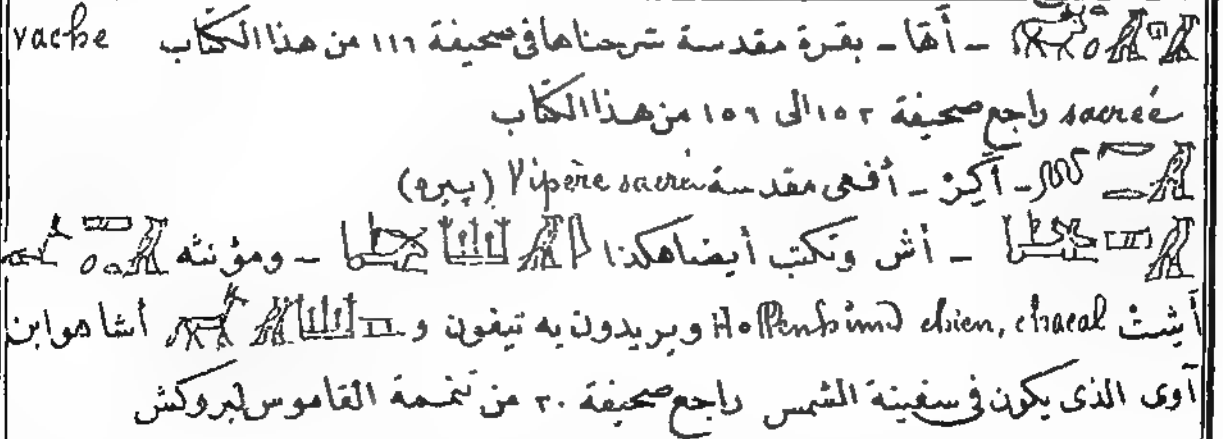 𓄿𓉔𓄿𓏏 - أَهَا - بقرة مقدسة شرحناها فى صحيفة ١١٦ من هذا الكتاب vache
sacrée راجع صحيفة ١٥٢ الى ١٥٦ من هذا الكتاب
- أَكِرْ - أفعى مقدسة Vipère sacrée (پيره)
- أش وتكتب أيضا هكذا - ومؤنثه
أَشِتْ Hollenhund chien, chacal ويريدون به تيفون و أشا هو ابن
آوى الذى يكون فى سفينة الشمس راجع صحيفة ٢٠ من تتمة القاموس لبروكش